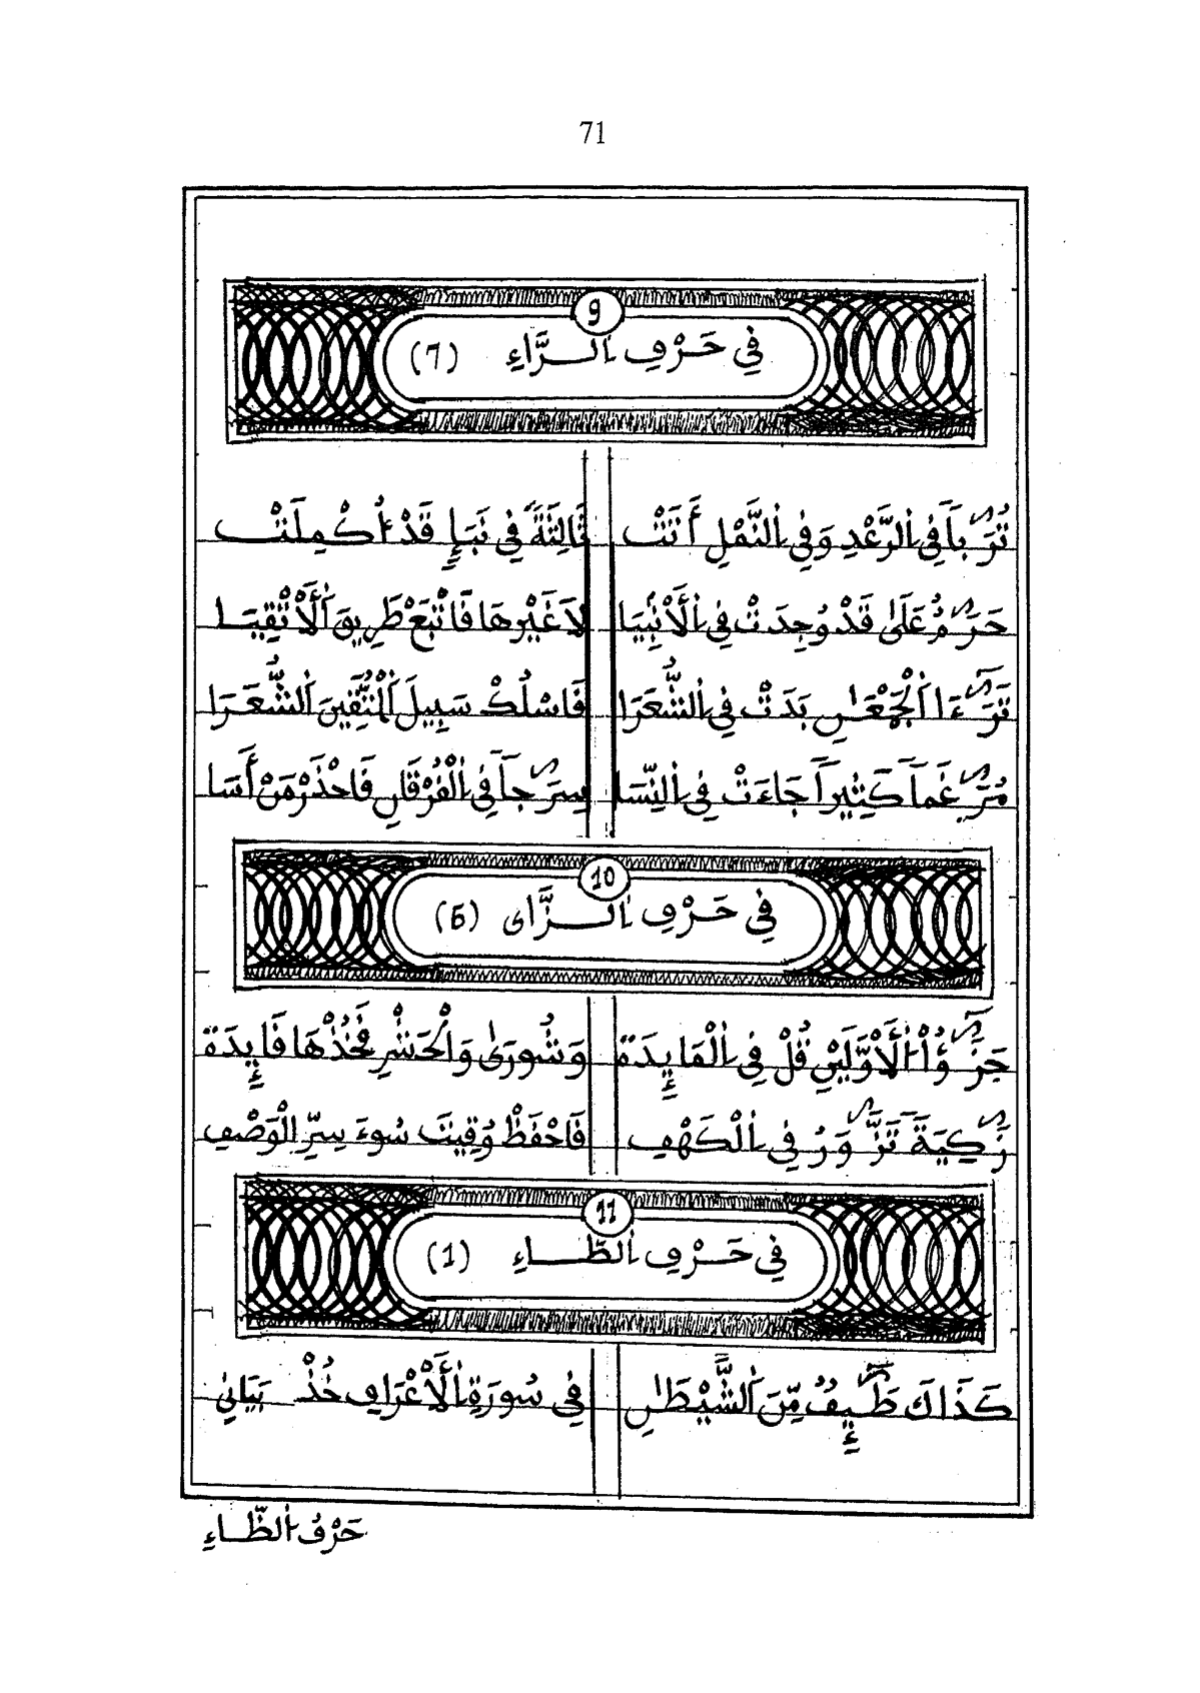 71
9
فِي حَرْفِ اَلـرَّاءِ (7)
تُرَٰباً فِي اِلرَّعْدِ وَفِي اِلنَّمْلِ أَتَتْ ثَالِثَةً فِي نَبَإٍ قَدْ اُكْمِلَتْ
حَرَٰمٌ عَلَىٰ قَدْ وُجِدَتْ فِي اِلَأنْبِيَا لاَ غَيْرِهَا فَاتْبَعْ طَرِيقَ اَلَأتْقِيَـا
تَرَٰءَا اَلْجَمْعَٰنِ بَدَتْ فِي اِلشُّعَرَا فَاسْلُكْ سَبِيلَ اَلْمُتَّقِينَ اَلشُّعَـرَا
مُرَٰغَماً كَثِيراً جَاءَتْ فِي اِلنِّسَا سِرَٰجاً فِي اِلْفُرْقَانِ فَاحْذَرْ مَنْ أَسَا
10
فِي حَرْفِ اَلـزَّاي (5)
جَزَٰٓؤُاْ اَلَأوَّلَيْنِ قُلْ فِي اِلْمَائِدَة وَشُورَىٰ وَالْحَشْرِ فَخُذْهَا فَائِدَة
زَٰكِيَةً تَزَّٰوَرُ فِي اِلْكَهْفِ فَاحْفَظْ وُقِيتَ سُوءَ سِرِّ اِلْوَصْفِ
11
فِي حَرْفِ اَلطَّـاءِ (1)
كَذَاكَ طَٰٓئِفٌ مِّنَ اَلشَّيْطَٰنِ فِي سُورَةِ اِلَأعْرَافِ خُذْ بَيَانِي
حَرْفُ اَلظَّـاءِ